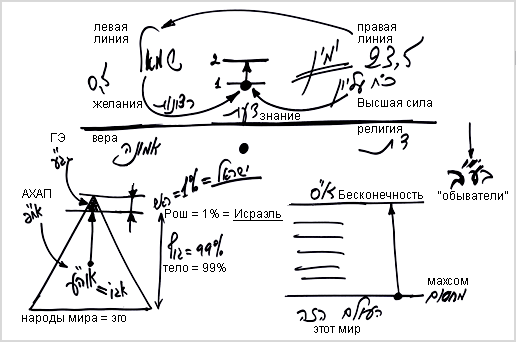 левая
линия
правая
линия
שמאל
2
1
ימין
23,5
0,5
כח עליון
желания
רצונות
דעת
знание
Высшая сила
ГЭ
вера
религия
אמונה
דת
АХАП
"обыватели"
ראש = 1% = ישראל
Рош = 1% = Исраэль
א"ס
Бесконечность
גוף = 99%
тело = 99%
махсом
מחסום
народы мира = эго
העולם הזה
этот мир